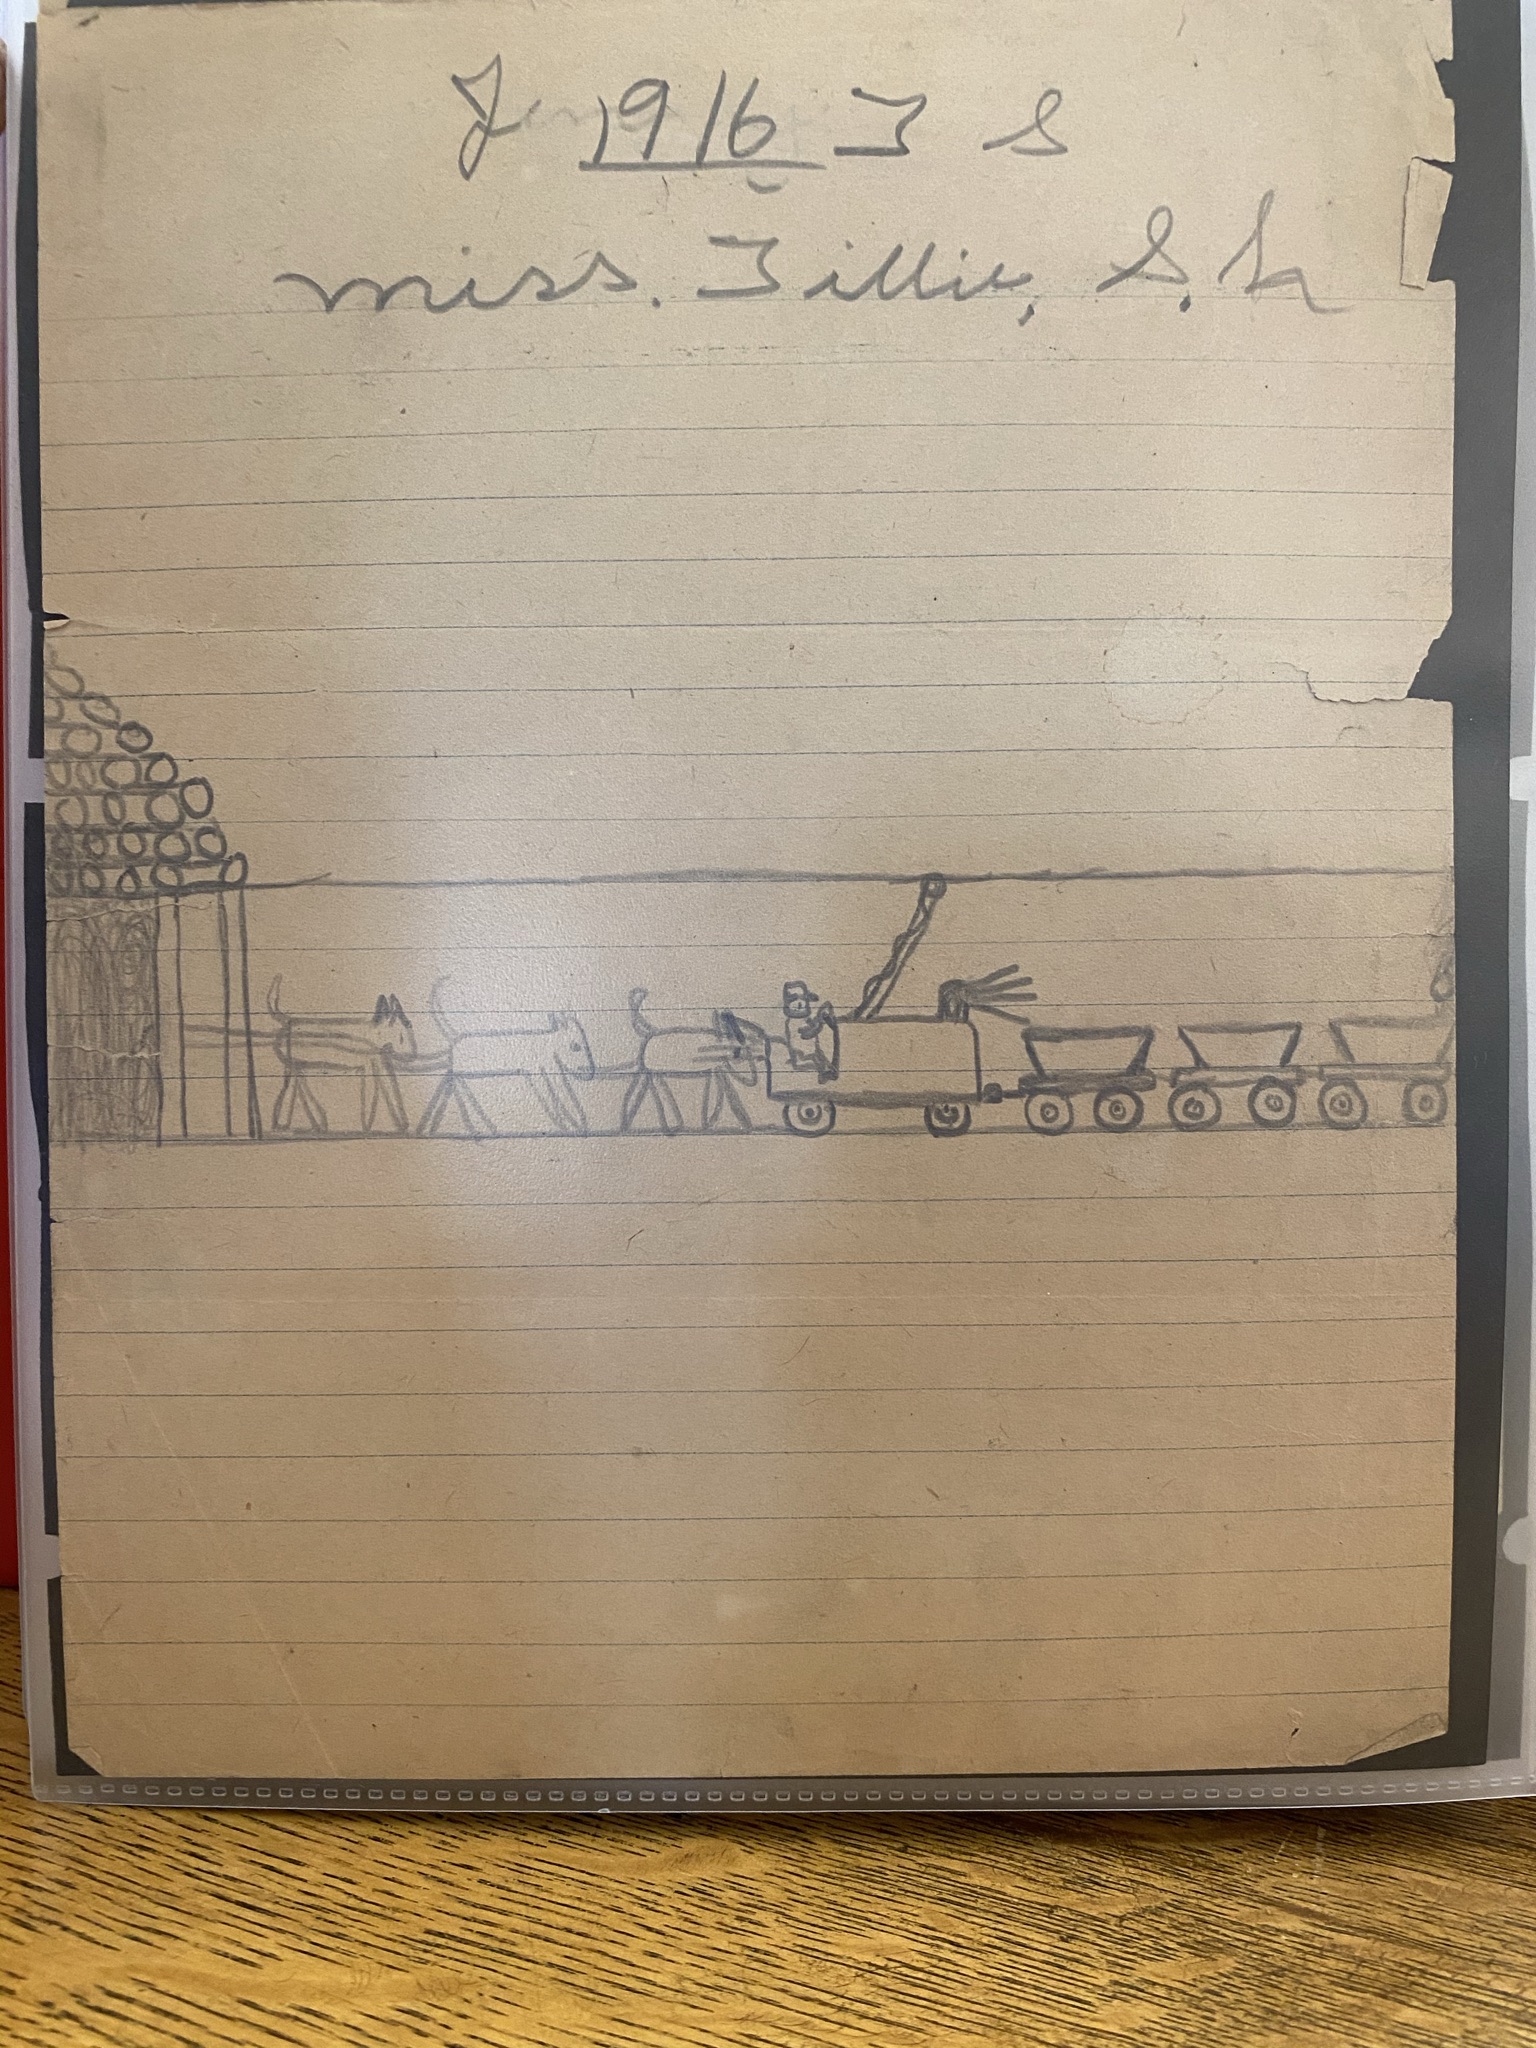 J 1916 T S
miss. Tillie, S.